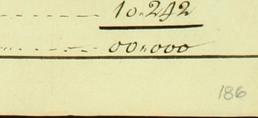 10.242
00.000
186